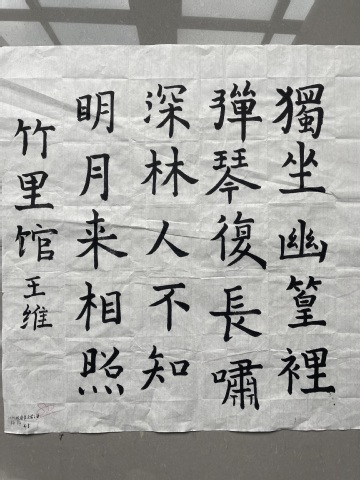 獨坐幽篁裡
彈琴復長嘯
深林人不知
明月来相照
竹里馆
王维